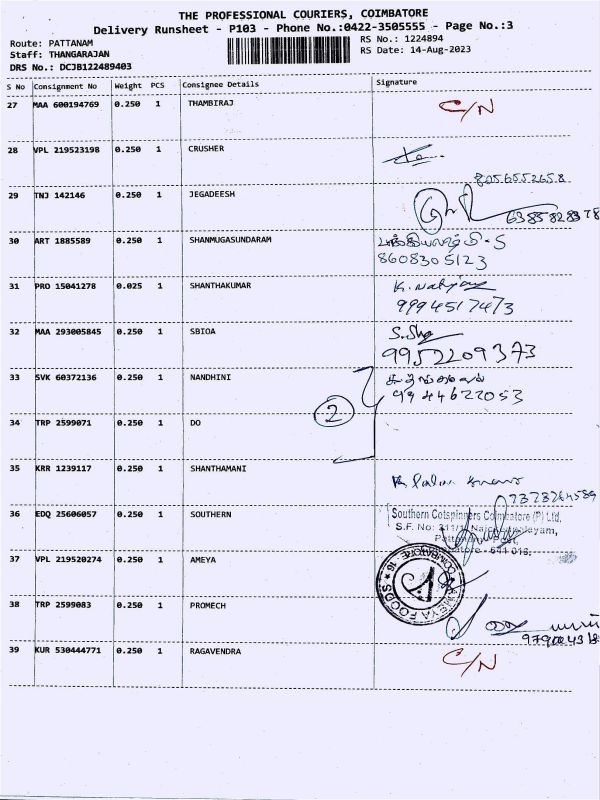 THE PROFESSIONAL COURIERS, COIMBATORE
Delivery Runsheet - P103 - Phone No.:0422-3505555 - Page No.:3
Route: PATTANAM
RS No.: 1224894
Staff: THANGARAJAN
RS Date: 14-Aug-2023
DRS No.: DCJB122489403
S No Consignment No Weight PCS Consignee Details Signature
27 MAA 600194769 0.250 1 THAMBIRAJ C/N
28 VPL 219523198 0.250 1 CRUSHER
8056552658
29 TNJ 142146 0.250 1 JEGADEESH
6385828378
30 ART 1885589 0.250 1 SHANMUGASUNDARAM
8608305123
31 PRO 15041278 0.025 1 SHANTHAKUMAR
9994517473
32 MAA 293005845 0.250 1 SBIOA
9952209373
33 SVK 60372136 0.250 1 NANDHINI
9944622053
2
34 TRP 2599071 0.250 1 DO
35 KRR 1239117 0.250 1 SHANTHAMANI
7373264589
36 EDQ 25606057 0.250 1 SOUTHERN
Southern Cotspinners Coimbatore (P) Ltd.
S.F. No: 311/1
641 016.
37 VPL 219520274 0.250 1 AMEYA
AMEYA FOODS COIMBATORE - 16
38 TRP 2599083 0.250 1 PROMECH
39 KUR 530444771 0.250 1 RAGAVENDRA C/N